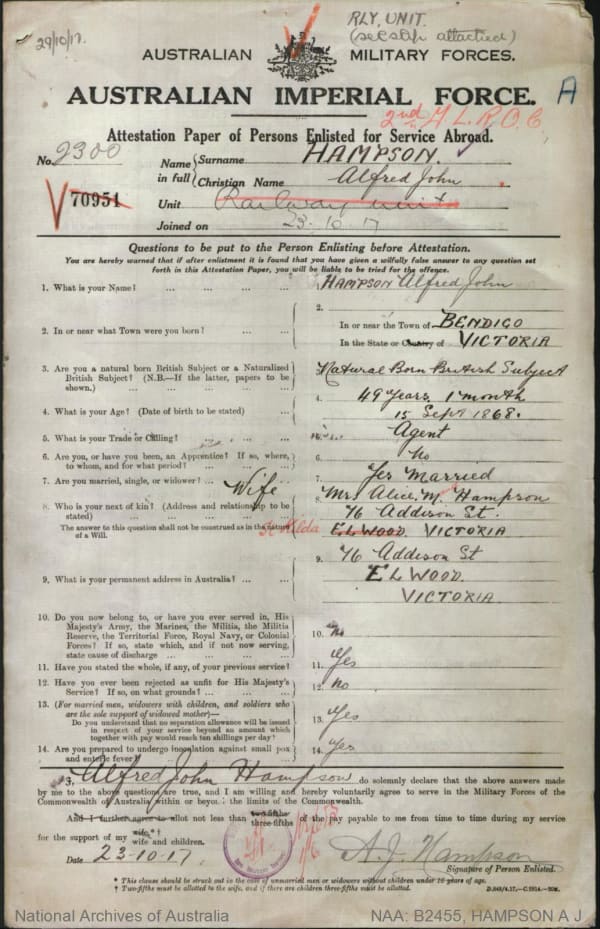 29/10/17.
RLY, UNIT.
AUSTRALIAN MILITARY FORCES.
AUSTRALIAN IMPERIAL FORCE. A
2nd
Attestation Paper of Persons Enlisted for Service Abroad.
No. 2300
Name in full { Surname HAMPSON.
Christian Name Alfred John
70951
Unit Railway Unit
Joined on 23-10-17
Questions to be put to the Person Enlisting before Attestation.
You are hereby warned that if after enlistment it is found that you have given a wilfully false answer to any question set
forth in this Attestation Paper, you will be liable to be tried for the offence.
1. What is your Name? ... ... ... ... 1. HAMPSON Alfred John
2. In or near what Town were you born? ... ... 2. In or near the Town of BENDIGO
In the State or Country of VICTORIA
3. Are you a natural born British Subject or a Naturalized
British Subject? (N.B.—If the latter, papers to be
shown.) ... ... ... ... Natural Born British Subject
4. What is your Age? (Date of birth to be stated) ... 4. 49 Years 1 month
15 Sept 1868.
5. What is your Trade or Calling? ... ... ... Agent
6. Are you, or have you been, an Apprentice? If so, where,
to whom, and for what period? ... ... 6. No
7. Are you married, single, or widower? ... ... 7. Yes Married
8. Who is your next of kin? (Address and relationship to be
stated) ... ... Wife 8. Mrs Alice. M. Hampson
76 Addison St.
The answer to this question shall not be construed as in the nature
of a Will. St Kilda ELWOOD VICTORIA
9. What is your permanent address in Australia? ... ... 9. 76 Addison St
ELWOOD.
VICTORIA.
10. Do you now belong to, or have you ever served in, His
Majesty's Army, the Marines, the Militia, the Militia
Reserve, the Territorial Force, Royal Navy, or Colonial
Forces? If so, state which, and if not now serving,
state cause of discharge ... ... ... 10. No
11. Have you stated the whole, if any, of your previous service? 11. Yes
12. Have you ever been rejected as unfit for His Majesty's
Service? If so, on what grounds? ... ... 12. No
13. (For married men, widowers with children, and soldiers who
are the sole support of widowed mother)—
Do you understand that no separation allowance will be issued
in respect of your service beyond an amount which
together with pay would reach ten shillings per day? 13. Yes
14. Are you prepared to undergo inoculation against small pox
and enteric fever? 14. Yes
I, Alfred John Hampson do solemnly declare that the above answers made
by me to the above questions are true, and I am willing and hereby voluntarily agree to serve in the Military Forces of the
Commonwealth of Australia within or beyond the limits of the Commonwealth.
And I further agree to allot not less than two-fifths three-fifths of the pay payable to me from time to time during my service
for the support of my wife.*† wife and children.
Date 23-10-17. A. J. Hampson
Signature of Person Enlisted.
* This clause should be struck out in the case of unmarried men or widowers without children under 16 years of age.
† Two-fifths must be allotted to the wife, and if there are children three-fifths must be allotted.
National Archives of Australia NAA: B2455, HAMPSON A J